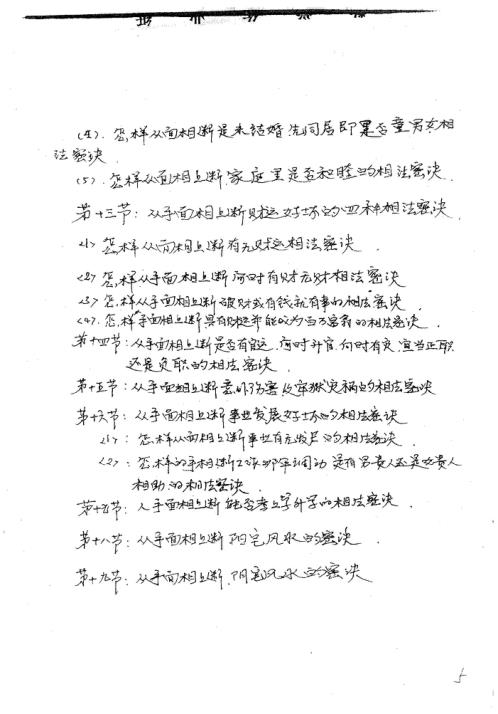 (4). 怎样从面相断是未结婚先同居即是否童男女相
法密诀.
(5). 怎样从面相上断家庭里是否和睦的相法密诀.
第十三节: 从手面相上断财运好坏的四种相法密诀.
<1> 怎样从面相上断有无财运相法密诀.
<2> 怎样从手面相上断何时有财无财相法密诀
<3> 怎样从手面相上断破财或有钱就有事的相法密诀
<4>. 怎样手面相上断具有财运并能成为百万富翁的相法密诀.
第十四节: 从手面相上断是否有官运. 何时升官. 何时有灾. 宜当正职
还是负职的相法密诀.
第十五节: 从手面相上断意外伤害及牢狱灾祸的相法密诀
第十六节: 从手面相上断事业发展好坏的相法密诀
<1>: 怎样从面相上断事业有无发展的相法密诀.
<2>: 怎样的手相断工作那年调动 是有男贵人还是女贵人
相助的相法密诀.
第十五节: 人手面相上断能否考上学升学的相法密诀.
第十八节: 从手面相上断阳宅风水的密诀.
第十九节: 从手面相上断.阴宅风水的密诀
5